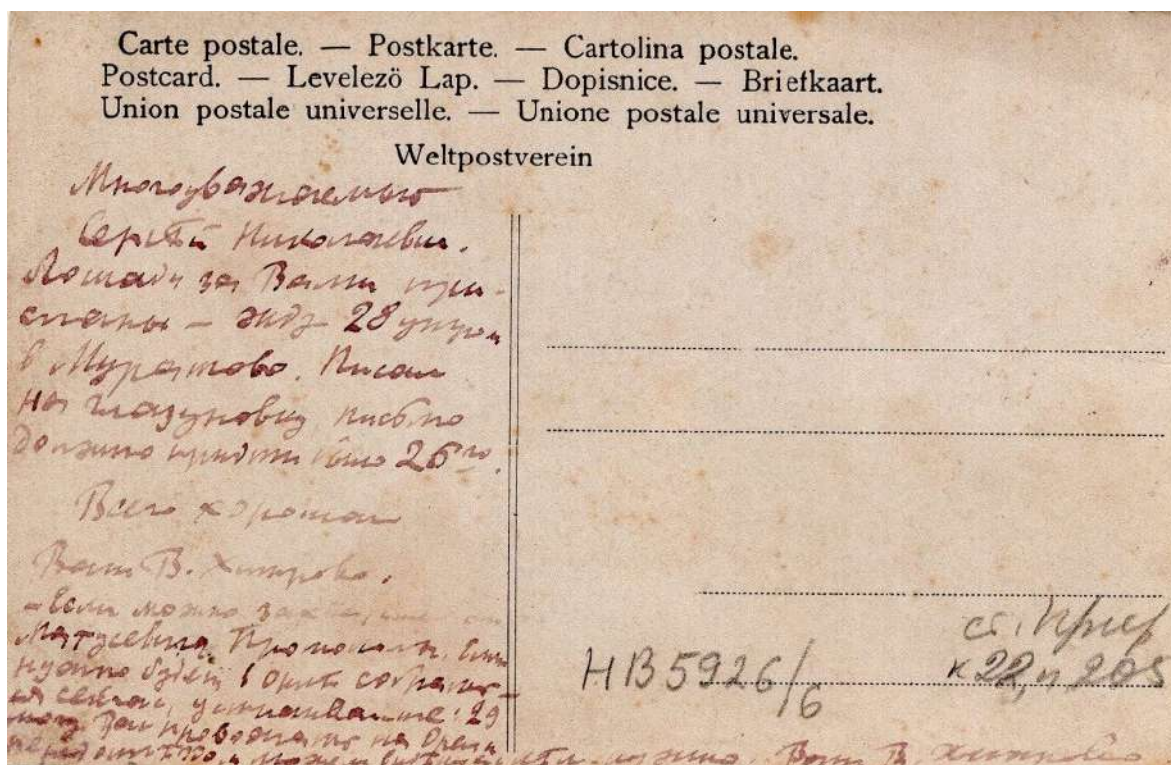 Carte postale. — Postkarte. — Cartolina postale.
Postcard. — Levelezö Lap. — Dopisnice. — Briefkaart.
Union postale universelle. — Unione postale universale.
Weltpostverein
Многоуважаемый
Сергѣй Николаевич.
Лошади за Вами при-
сланы – жду 28 утром
в Муратово. Писал
на Глазуновку, письмо
должно придти было 26го.
Всего хорошаго
Ваш В. Хитрово.
– Если можно
Матусевича.
нужно будет в Орле собрать-
ся сейчас, 29
на Орел
можем нужно. Ваш В. Хитрово
НВ5926/6
к 22, п 205